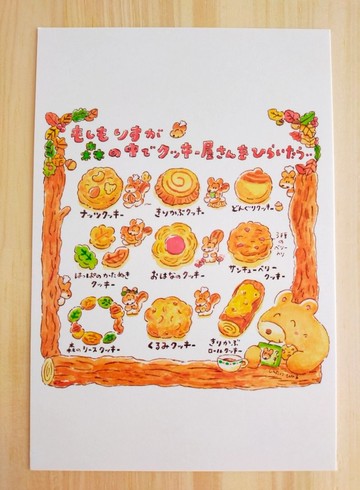 もしもりすが
森の中でクッキー屋さんをひらいたら..
ナッツクッキー
きりかぶクッキー
どんぐりクッキー
はっぱのかたぬき
クッキー
おはなのクッキー
サンキューベリー
クッキー
3種
のベリー
入り
森のリースクッキー
くるみクッキー
きりかぶ
ロールクッキー